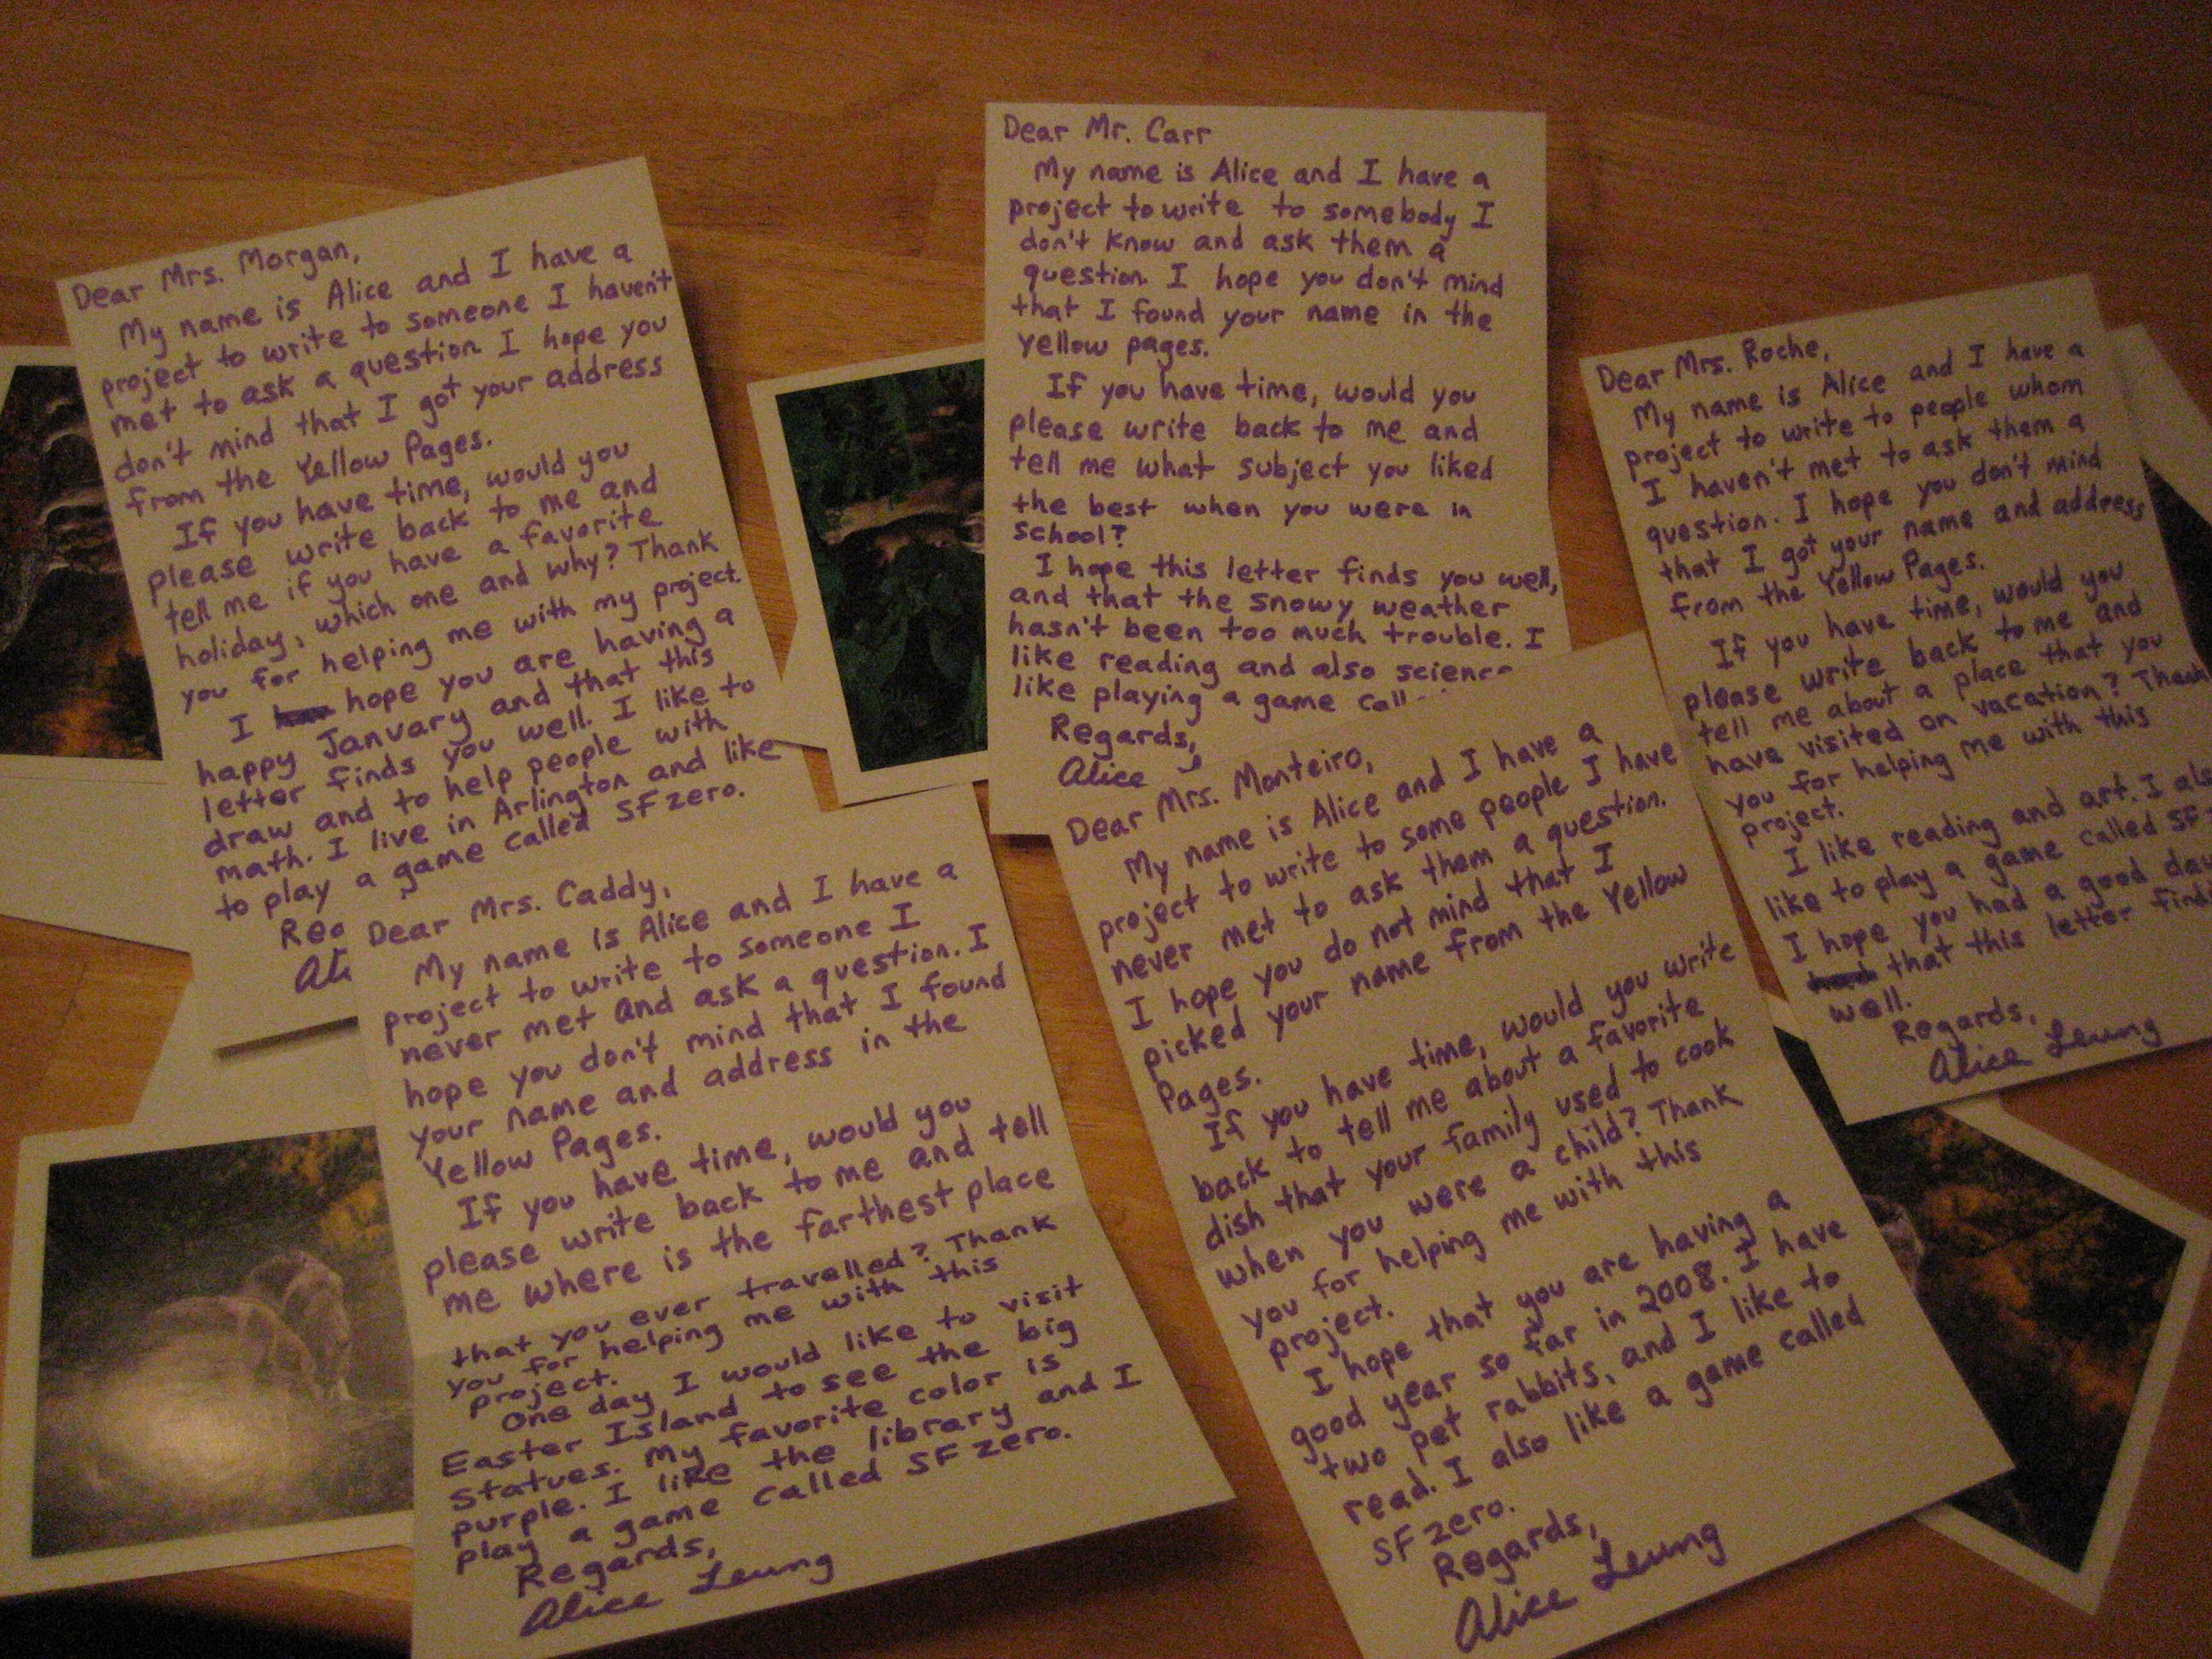 Dear Mrs. Morgan,
My name is Alice and I have a
project to write to someone I haven't
met to ask a question. I hope you
don't mind that I got your address
from the Yellow Pages.
If you have time, would you
please write back to me and
tell me if you have a favorite
holiday, which one and why? Thank
you for helping me with my project.
I hope you are having a
happy January and that this
letter finds you well. I like to
draw and to help people with
math. I live in Arlington and like
to play a game called SFzero.
Dear Mr. Carr
My name is Alice and I have a
project to write to somebody I
don't know and ask them a
question. I hope you don't mind
that I found your name in the
Yellow pages.
If you have time, would you
please write back to me and
tell me what subject you liked
the best when you were in
school?
I hope this letter finds you well,
and that the snowy weather
hasn't been too much trouble. I
like reading and also
like playing a game
Regards,
Alice
Dear Mrs. Roche,
My name is Alice and I have a
project to write to people whom
I haven't met to ask them a
question. I hope you don't mind
that I got your name and address
from the Yellow Pages.
If you have time, would you
please write back to me and
tell me about a place that you
have visited on vacation? Thank
you for helping me with this
project.
I like reading and art. I
like to play a game called
I hope you had a good
that this letter
well.
Regards,
Alice Leung
Dear Mrs. Caddy,
My name is Alice and I have a
project to write to someone I
never met and ask a question. I
hope you don't mind that I found
your name and address in the
Yellow Pages.
If you have time, would you
please write back to me and tell
me where is the farthest place
that you ever travelled? Thank
you for helping me with this
project.
One day I would like to visit
Easter Island to see the big
statues. My favorite color is
purple. I like the library and I
play a game called SFzero.
Regards,
Alice Leung
Dear Mrs. Monteiro,
My name is Alice and I have a
project to write to some people I have
never met to ask them a question.
I hope you do not mind that I
picked your name from the Yellow
Pages.
If you have time, would you write
back to tell me about a favorite
dish that your family used to cook
when you were a child? Thank
you for helping me with this
project.
I hope that you are having a
good year so far in 2008. I have
two pet rabbits, and I like to
read. I also like a game called
SFzero.
Regards,
Alice Leung